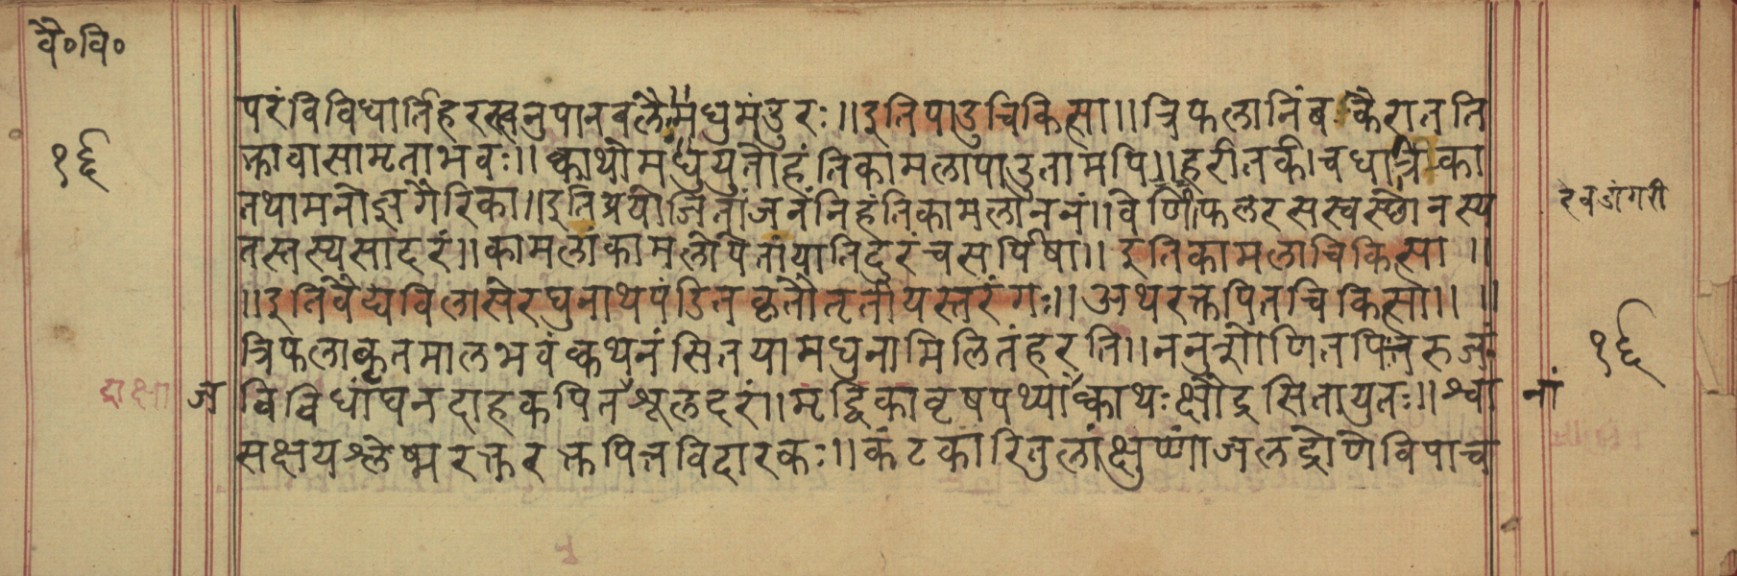 वै०वि०
परंविविधार्तिहरस्त्वनुपानबलैर्मधुमंडुरः॥इतिपांडुचिकित्सा॥त्रिफलानिंबकैरातति
१६
क्तावासामृताभवः॥क्वाथोमधुयुतोहंतिकामलापांडुतामपि॥हरीतकीचधात्रिका
तथामनोज्ञगैरिका॥इतिप्रयोजितांजनंनिहंतिकामलाननं॥वेणिफलरसस्वस्छानस्य
तस्तस्यसादरं॥कामलांकामलोपेतांयातिदुरंचसर्पिषा॥इतिकामलाचिकित्सा॥
॥इतिवैद्यविलासेरघुनाथपंडितकृतौतृतीयस्तरंगः॥अथरक्तपितचिकित्सा॥॥
त्रिफलाकृतमालभवंक्वथनंसितयामधुनामिलितंहरति॥ननुशोणितपित्तरुजं
१६
द्राक्षा
विविधांघनदाहकपितशूलहरं॥मृद्विकावृषपथ्यांक्वाथःक्षौद्रसितायुतः॥श्वा
सक्षयश्लेष्मरक्तरक्तपित्तविदारकः॥कंटकारितुलांक्षुण्णांजलद्रोणेविपाच